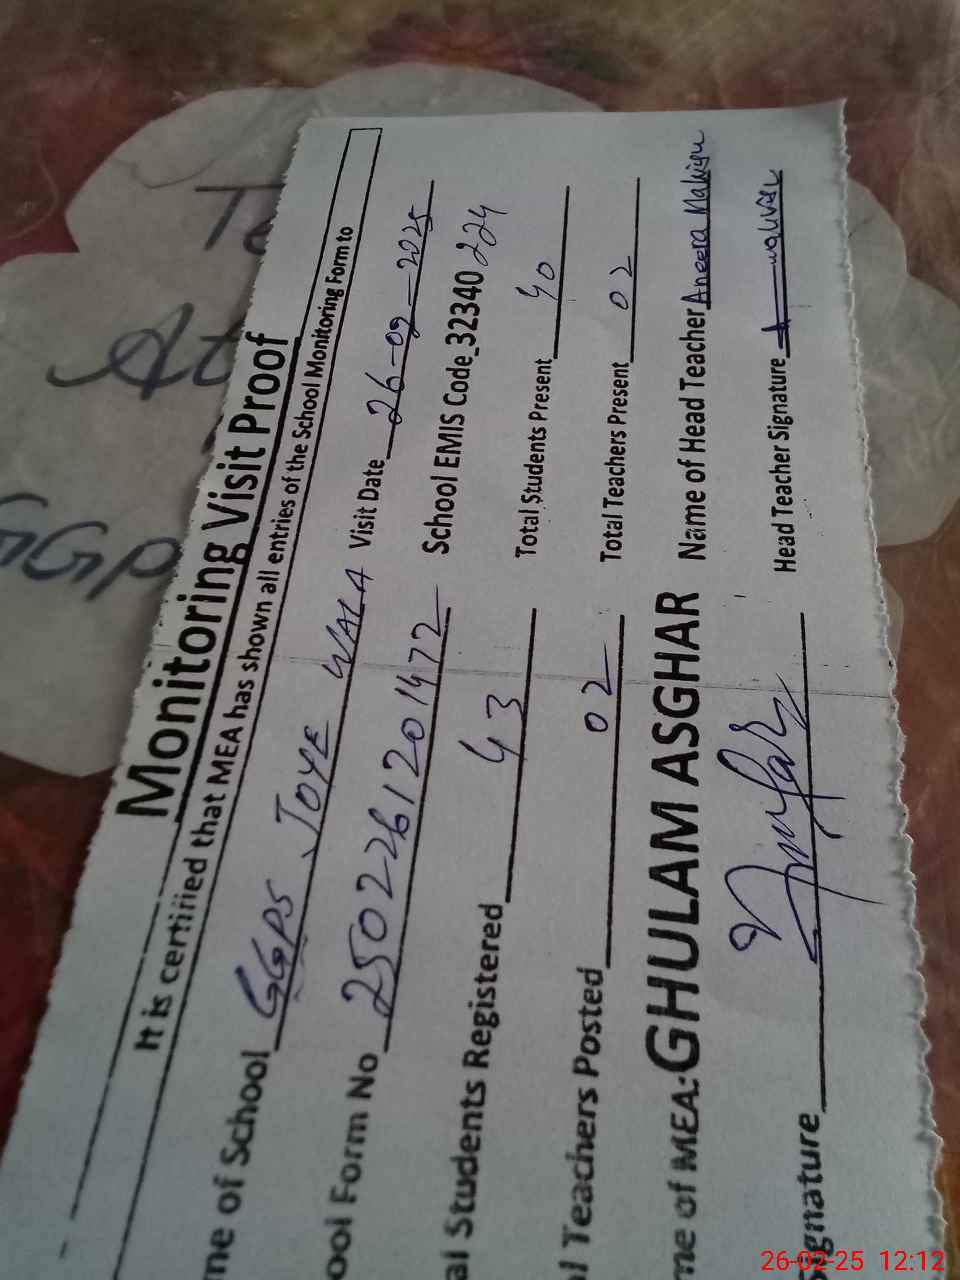 Monitoring Visit Proof
It is certified that MEA has shown all entries of the School Monitoring Form to
me of School GGPS JOYE WALA Visit Date 26-02-2025
ool Form No 2502261201472 School EMIS Code 32340224
al Students Registered 43 Total Students Present 40
l Teachers Posted 02 Total Teachers Present 02
me of MEA: GHULAM ASGHAR Name of Head Teacher Aneera
ignature Head Teacher Signature
At
GGP
26-02-25 12:12